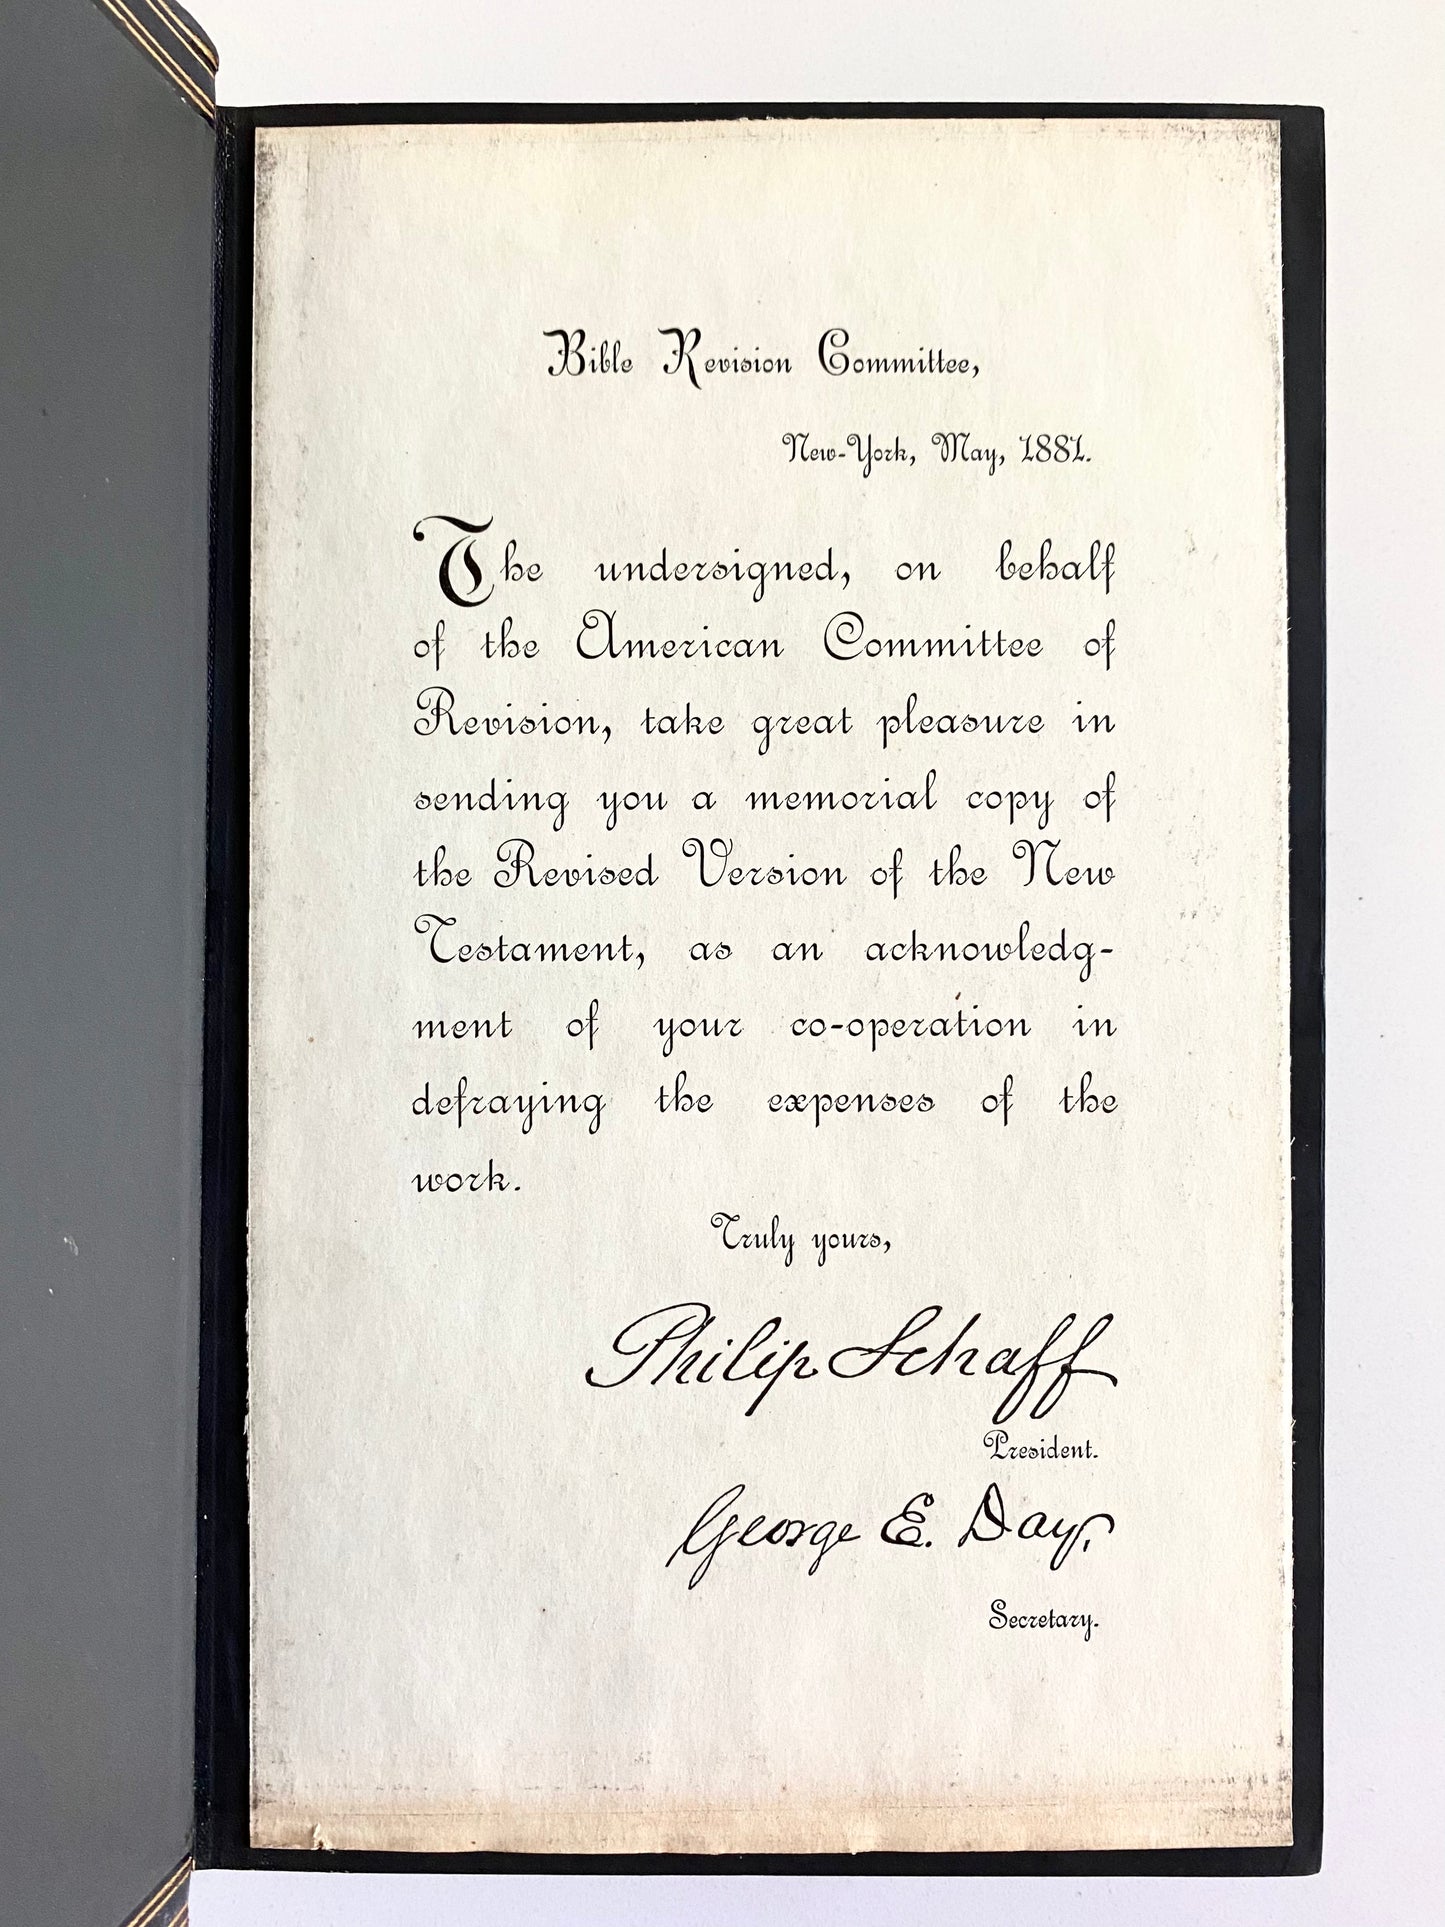 Bible Revision Committee,
New-York, May, 1881.
The undersigned, on behalf
of the American Committee of
Revision, take great pleasure in
sending you a memorial copy of
the Revised Version of the New
Testament, as an acknowledg-
ment of your co-operation in
defraying the expenses of the
work.
Truly yours,
Philip Schaff
President.
George E. Day,
Secretary.